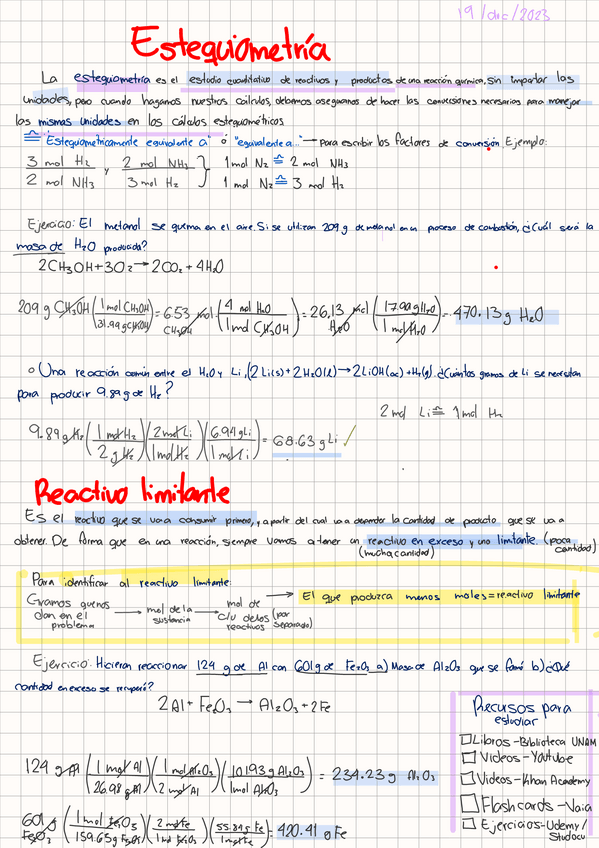 19/dic/2023
Estequiometría
La estequiometría es el estudio cuantitativo de reactivos y productos de una reacción química, sin importar las
unidades, pero cuando hagamos nuestros cálculos, debemos asegurarnos de hacer las conversiones necesarias para manejar
las mismas unidades en los cálculos estequiométricos
≏ "Estequiométricamente equivalente a" ó "equivalente a..." — para escribir los factores de conversión. Ejemplo:
3 mol H₂ / 2 mol NH₃ y 2 mol NH₃ / 3 mol H₂ } 1 mol N₂ ≏ 2 mol NH₃
1 mol N₂ ≏ 3 mol H₂
Ejercicio: El metanol se quema en el aire. Si se utilizan 209 g de metanol en un proceso de combustión, ¿Cuál será la
masa de H₂O producida?
2CH₃OH + 3O₂ → 2CO₂ + 4H₂O
209 g CH₃OH (1 mol CH₃OH / 31.99 g CH₃OH) = 6.53 mol CH₃OH (4 mol H₂O / 1 mol CH₃OH) = 26.13 mol H₂O (17.99 g H₂O / 1 mol H₂O) = 470.13 g H₂O
o Una reacción común entre el H₂O y Li, (2Li(s) + 2H₂O(l) → 2LiOH(ac) + H₂(g). ¿Cuántos gramos de Li se necesitan
para producir 9.89 g de H₂?
2 mol Li ≏ 1 mol H₂
9.89 g H₂ (1 mol H₂ / 2 g H₂) (2 mol Li / 1 mol H₂) (6.94 g Li / 1 mol Li) = 68.63 g Li ✓
Reactivo limitante
Es el reactivo que se va a consumir primero, y a partir del cual va a depender la cantidad de producto que se va a
obtener. De forma que en una reacción, siempre vamos a tener un reactivo en exceso y uno limitante. (poca cantidad)
(mucha cantidad)
Para identificar al reactivo limitante:
Gramos que nos dan en el problema → mol de la sustancia → mol de c/u de los reactivos (por separado) → El que produzca menos moles = reactivo limitante
Ejercicio: Hicieron reaccionar 124 g de Al con 601 g de Fe₂O₃ a) Masa de Al₂O₃ que se formó b) ¿Qué
cantidad en exceso se recuperó?
2Al + Fe₂O₃ → Al₂O₃ + 2Fe
124 g Al (1 mol Al / 26.98 g Al) (1 mol Al₂O₃ / 2 mol Al) (101.93 g Al₂O₃ / 1 mol Al₂O₃) = 234.23 g Al₂O₃
601 g Fe₂O₃ (1 mol Fe₂O₃ / 159.65 g Fe₂O₃) (2 mol Fe / 1 mol Fe₂O₃) (55.84 g Fe / 1 mol Fe) = 420.41 g Fe
Recursos para
estudiar
Libros - Biblioteca UNAM
Videos - Youtube
Videos - Khan Academy
Flashcards - Vaia
Ejercicios - Udemy /
Studocu